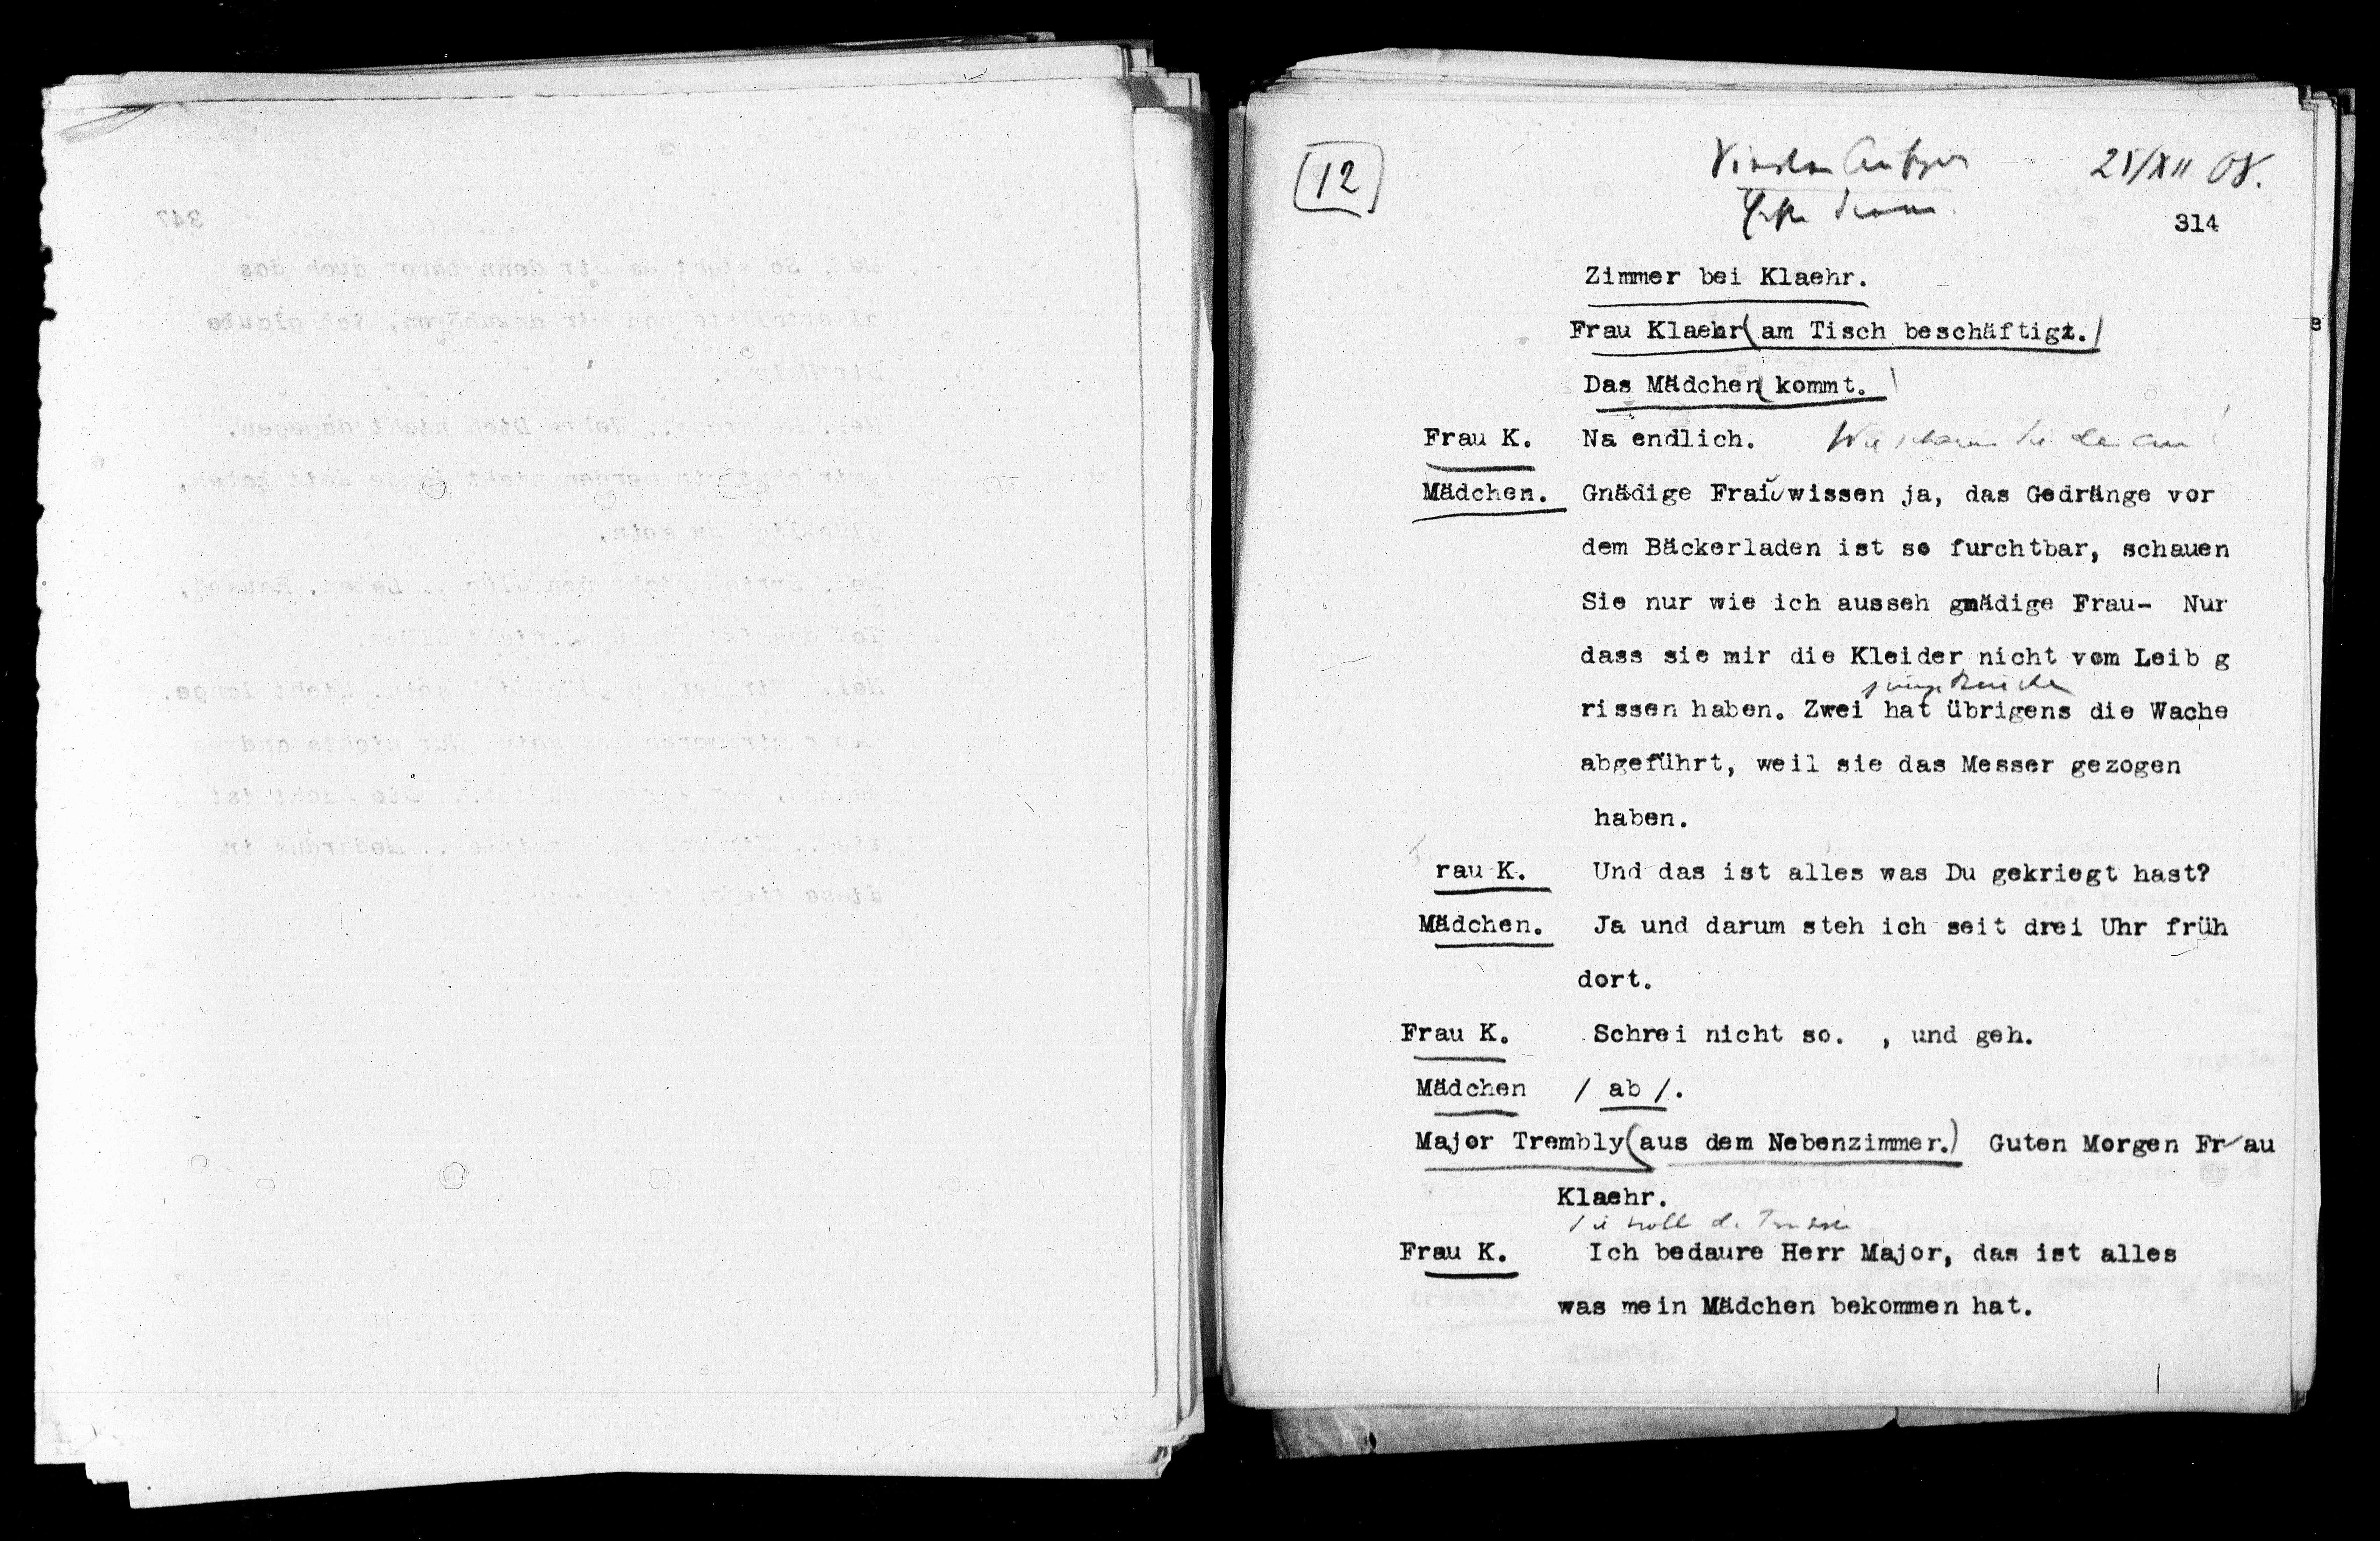 12
25/XII 08.
Erste Scene.
314
Zimmer bei Klaehr.
Frau Klaehr (am Tisch beschäftigt.)
Das Mädchen (kommt.)
Frau K. Na endlich. Wie schauen Sie denn aus!
Mädchen. Gnädige Frau wissen ja, das Gedränge vor
dem Bäckerladen ist so furchtbar, schauen
Sie nur wie ich ausseh gnädige Frau- Nur
dass sie mir die Kleider nicht vom Leib g
rissen haben. Zwei hat übrigens die Wache
abgeführt, weil sie das Messer gezogen
haben.
rau K. Und das ist alles was Du gekriegt hast?
Mädchen. Ja und darum steh ich seit drei Uhr früh
dort.
Frau K. Schrei nicht so. , und geh.
Mädchen / ab /.
Major Trembly (aus dem Nebenzimmer.) Guten Morgen Frau
Klaehr.
Frau K. Ich bedaure Herr Major, das ist alles
was mein Mädchen bekommen hat.